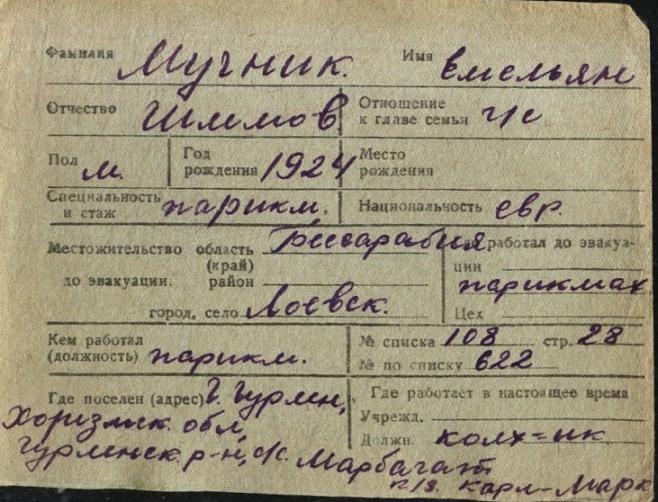 Фамилия Мучник. Имя Емельян
Отчество Шимов Отношение к главе семьи г/с
Пол м. Год рождения 1924 Место рождения
Специальность и стаж парикм. Национальность евр.
Местожительство область (край) Бессарабия
до эвакуации. район
город, село Лоевск.
работал до эвакуации парикмах
Цех
Кем работал (должность) парикм.
№ списка 108 стр. 28
№ по списку 622
Где поселен (адрес) г. Гурлен,
Хорезмск. обл,
Гурленск. р-н, с/с. Марбагат
к/з. Карл-Марк
Где работает в настоящее время
Учрежд.
Должн. колх=ик